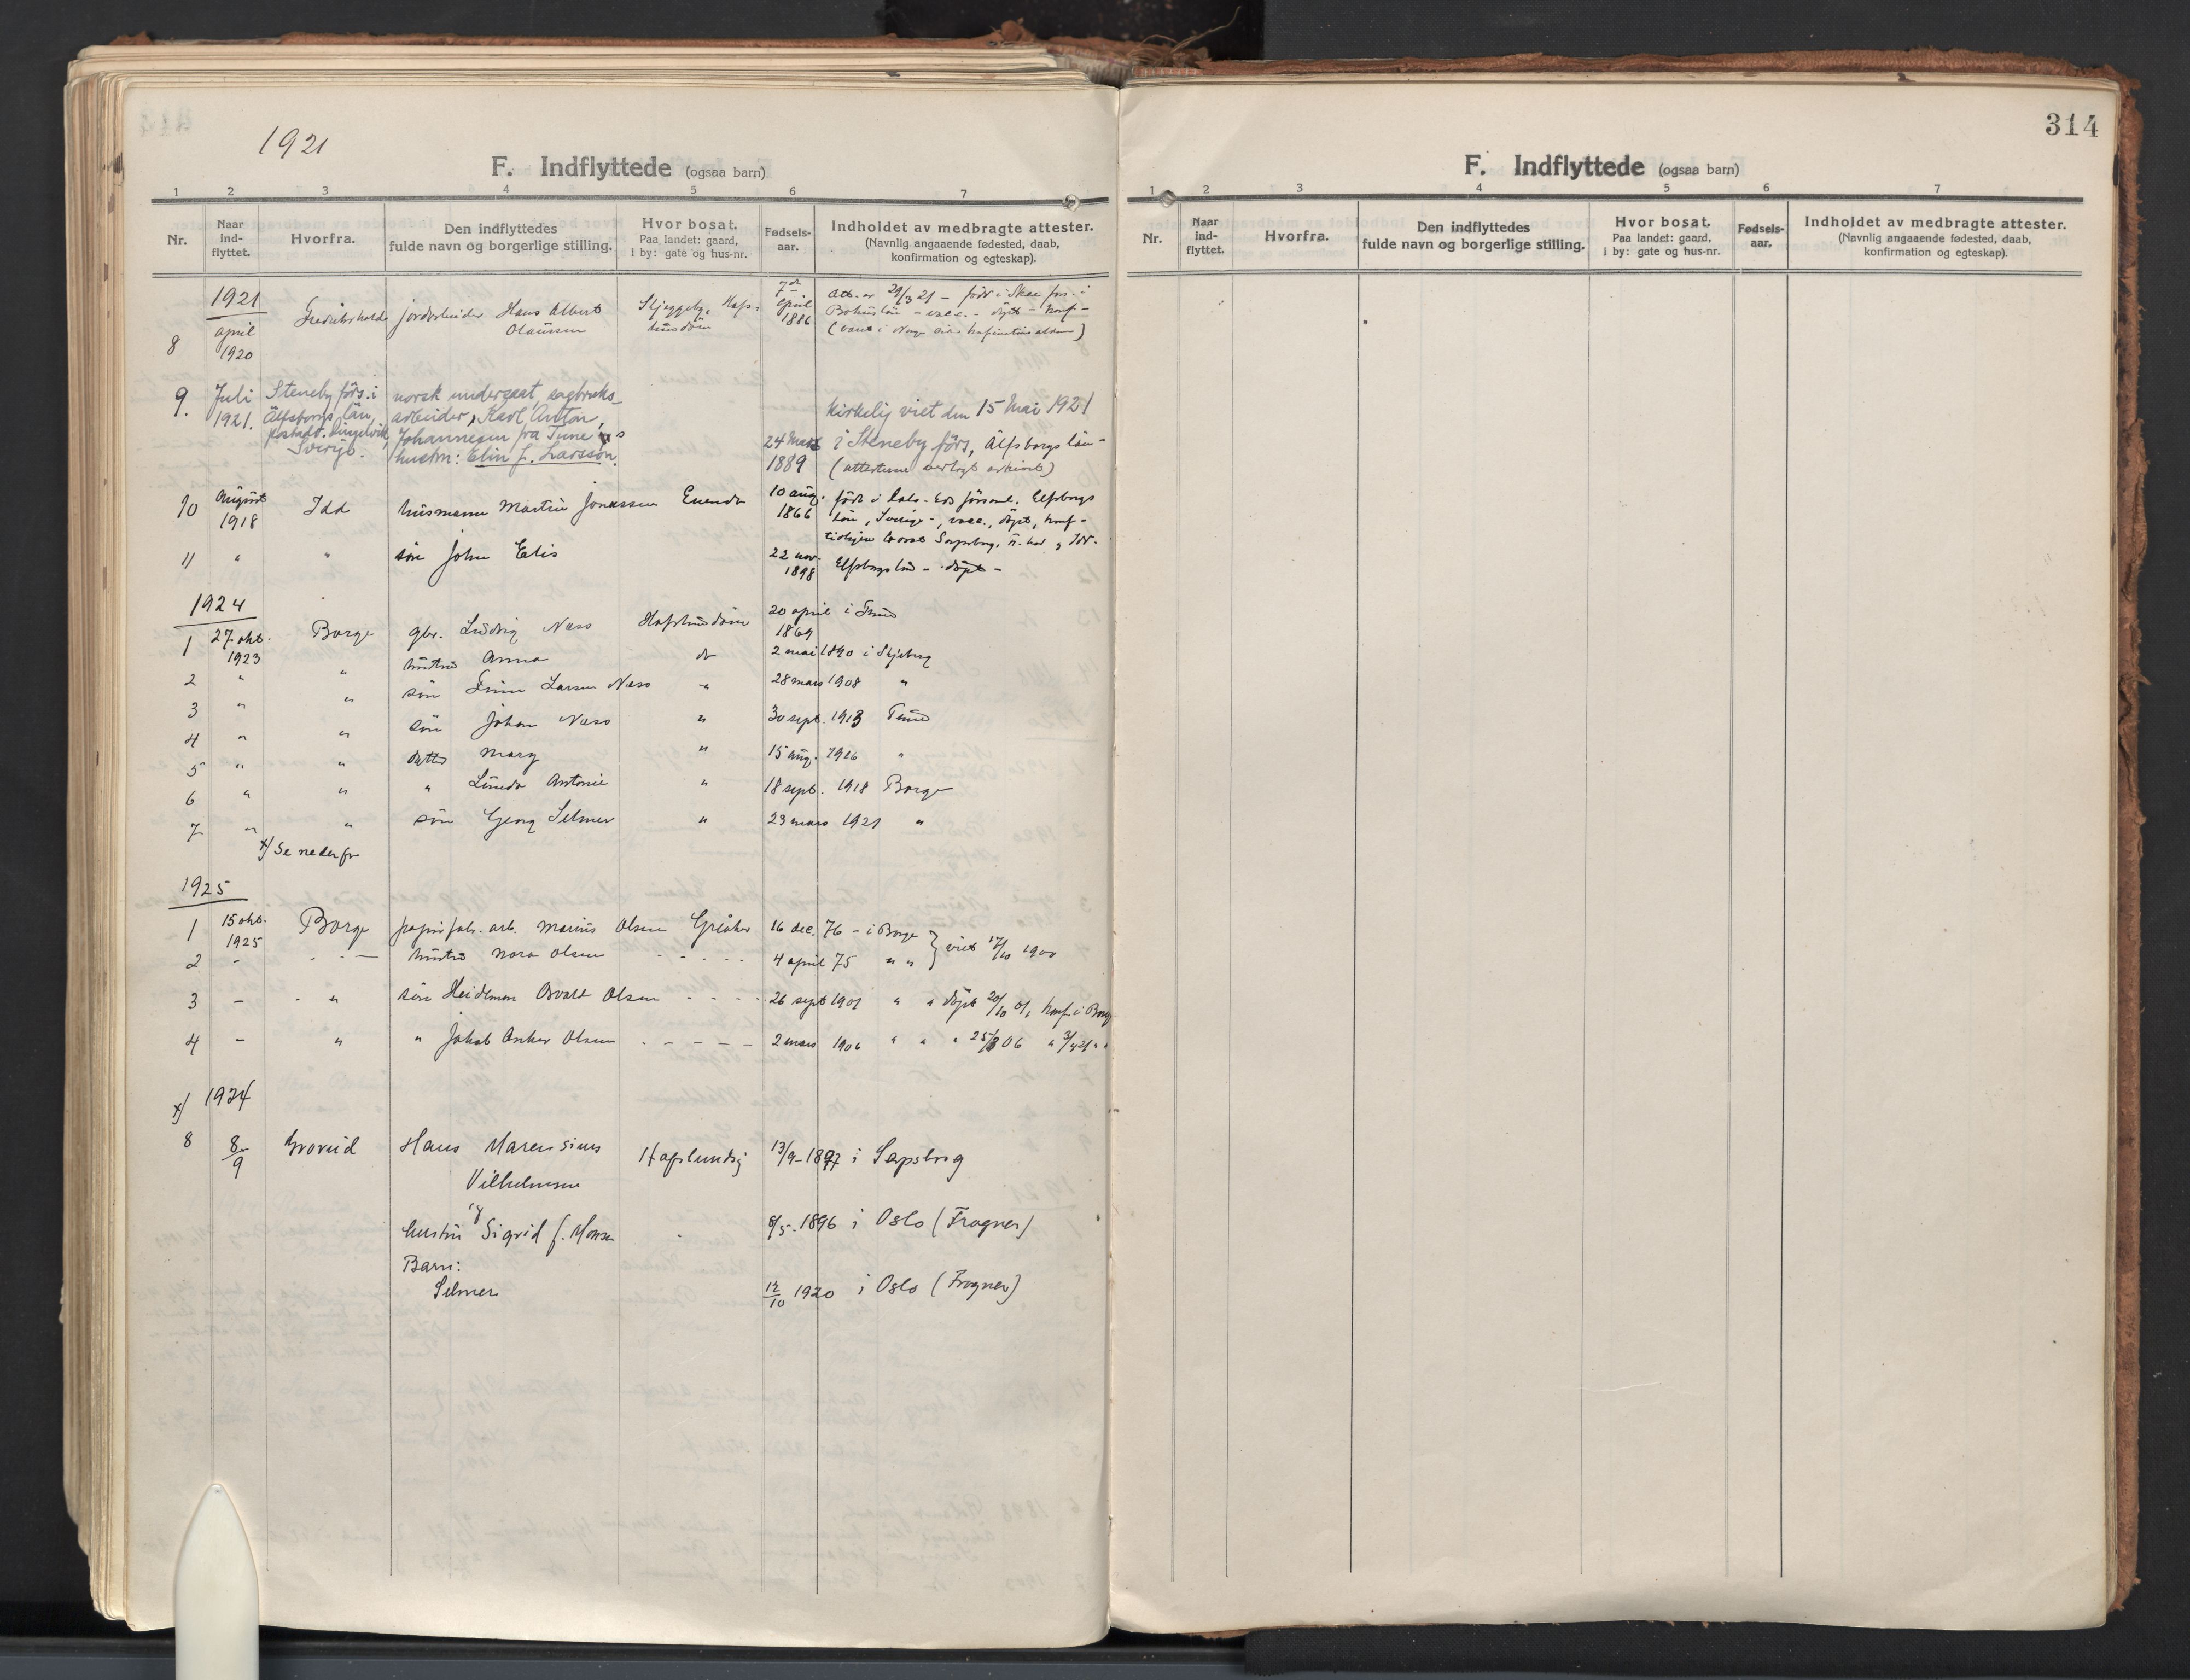 1921
F. Indflyttede (ogsaa barn)
1 2 3 4 5 6 7
Nr.
Naar ind-flyttet.
Hvorfra.
Den indflyttedes fulde navn og borgerlige stilling.
Hvor bosat. Paa landet: gaard, i by: gate og hus-nr.
Fødsels-aar.
Indholdet av medbragte attester. (Navnlig angaaende fødested, daab, konfirmation og egteskap).
1921
8 april 1920 Fredrikshald jordarbeider Hans Albert Olaussen 7de april 1886 Att. av 29/3 21 - född i Skee förs. i
Bohuslän - vacc. - döpt - konf -
9. Juli 1921. Steneby förs. i Älfsborgs län, Sverige.
norsk undersaat, sagbruks-
arbeider, Karl Anton
Johannesen fra Tune
hustru: Elin f. Larsson.
24 Mars 1889
kirkelig viet den 15 Mai 1921
i Steneby förs, Älfsborgs län -
10 August 1918 Idd husmann Martin Jonassen Enendr 10 aug. 1866
född i Dals-Eds församl. Elfsborgs
län, Sverige -, vacc., döpt, konf -
11 " " sön John Elis 22 nov. 1898 Elfsborgs län - döpt -
1924
1 27. okt. 1923 Borge gbr. Ludvig Næss Hafslundsöen 20 april 1869 i Tune
2 " " hustru Anna do 2 mai 1890 i Skjeberg
3 " " sön Einar Larsen Næss " 28 mars 1908 "
4 " " sön Johan Næss " 30 sept. 1913 Tune
5 " " datter Mary " 15 aug. 1916 "
6 " " " Linda Antonie " 18 sept. 1918 Borge
7 " " sön Georg Selmer " 23 mars 1921 "
x/ Se nedenfor
1925
1 15 okt. 1925 Borge papirfabr. arb. Marius Olsen Greåker 16 dec. 76 - i Borge } viet 17/10 1900
2 - - - - hustru Nora Olsen - - - - 4 april 75 " "
3 - - " sön Heidman Osvald Olsen - - - - 26 sept 1901 " " döpt 20/10 01 konf. i Borge
4 - " " Jakob Anker Olsen - - - - 2 mars 1906 " " " 25/3 06 " 3/4 21 " "
x/ 1924
8 8/9 Grorud Hans Marensius Vilhelmsen Hafslundsøy 13/9-1897 i Sarpsborg
og
hustru Sigrid f. Monsen " 8/5-1896 i Oslo (Frogner)
Barn:
Selmer 12/10 1920 i Oslo (Frogner)
314
F. Indflyttede (ogsaa barn)
1 2 3 4 5 6 7
Nr.
Naar ind-flyttet.
Hvorfra.
Den indflyttedes fulde navn og borgerlige stilling.
Hvor bosat. Paa landet: gaard, i by: gate og hus-nr.
Fødsels-aar.
Indholdet av medbragte attester. (Navnlig angaaende fødested, daab, konfirmation og egteskap).